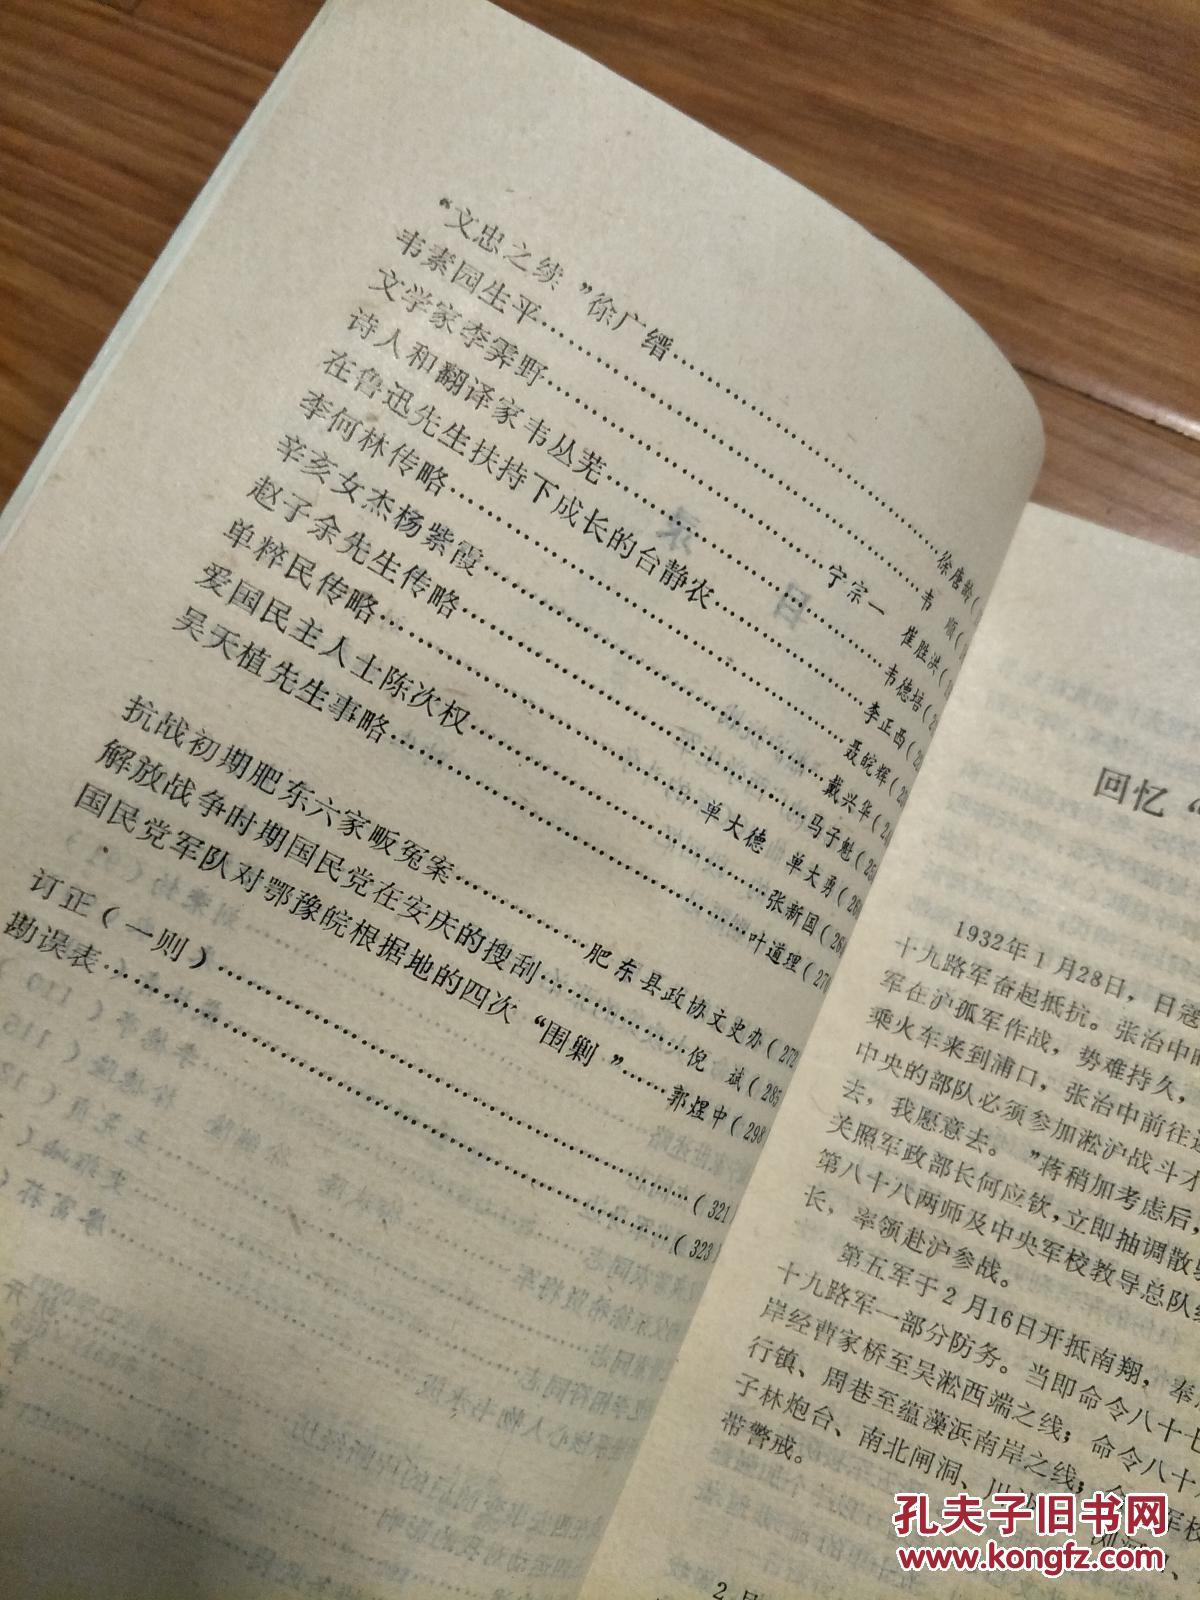 “文忠之续”徐广缙……徐唐龄(
韦素园生平……韦 顺(
文学家李霁野……宁宗一 崔胜洪(
诗人和翻译家韦丛芜……韦德培(
在鲁迅先生扶持下成长的台静农……李正西(
李何林传略……聂皖辉(
辛亥女杰杨紫霞……戴兴华(
赵子余先生传略……马子魁(
单粹民传略……单大德 单大勇(
爱国民主人士陈次权……张新国(
吴天植先生事略……叶道理(
抗战初期肥东六家畈冤案……肥东县政协文史办(272
解放战争时期国民党在安庆的搜刮……倪 斌(285
国民党军队对鄂豫皖根据地的四次“围剿”……郭煜中(298
订正(一则)……(321
勘误表……(323
回忆“
1932年1月28日，日寇
十九路军奋起抵抗。张治中
军在沪孤军作战，势难持久，
乘火车来到浦口，张治中前往
中央的部队必须参加淞沪战斗才
去，我愿意去。”蒋稍加考虑后，
关照军政部长何应钦，立即抽调散
第八十八两师及中央军校教导总队
长，率领赴沪参战。
第五军于2月16日开抵南翔，奉
十九路军一部分防务。当即命令八十七
岸经曹家桥至吴淞西端之线；命令八十
行镇、周巷至蕴藻浜南岸之线；
子林炮台、南北闸洞、川沙
带警戒。
孔夫子旧书网
www.kongfz.com